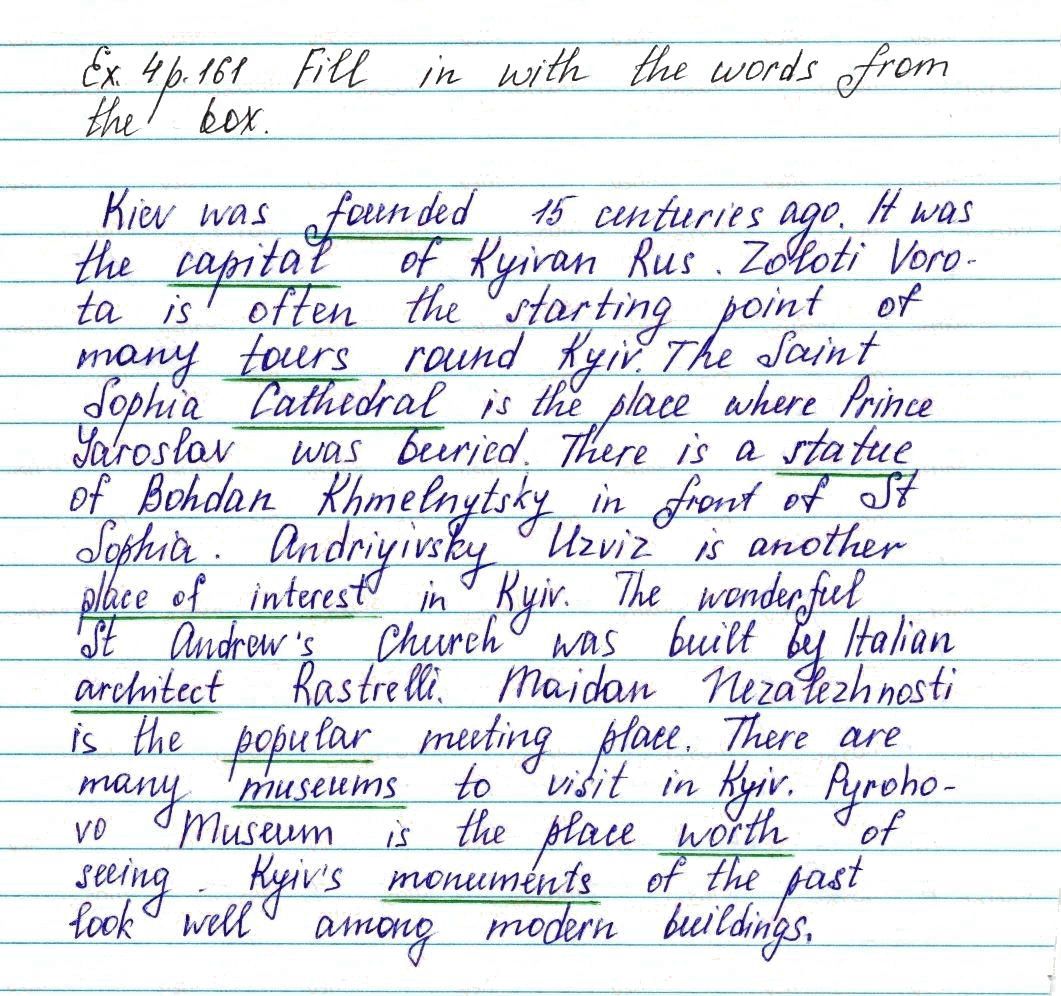 Ex. 4 p. 161 Fill in with the words from
the box.
Kiev was founded 15 centuries ago. It was
the capital of Kyivan Rus. Zoloti Voro-
ta is often the starting point of
many tours round Kyiv. The Saint
Sophia Cathedral is the place where Prince
Yaroslav was buried. There is a statue
of Bohdan Khmelnytsky in front of St
Sophia. Andriyivsky Uzviz is another
place of interest in Kyiv. The wonderful
St Andrew's Church was built by Italian
architect Rastrelli. Maidan Nezalezhnosti
is the popular meeting place. There are
many museums to visit in Kyiv. Pyroho-
vo Museum is the place worth of
seeing. Kyiv's monuments of the past
look well among modern buildings.